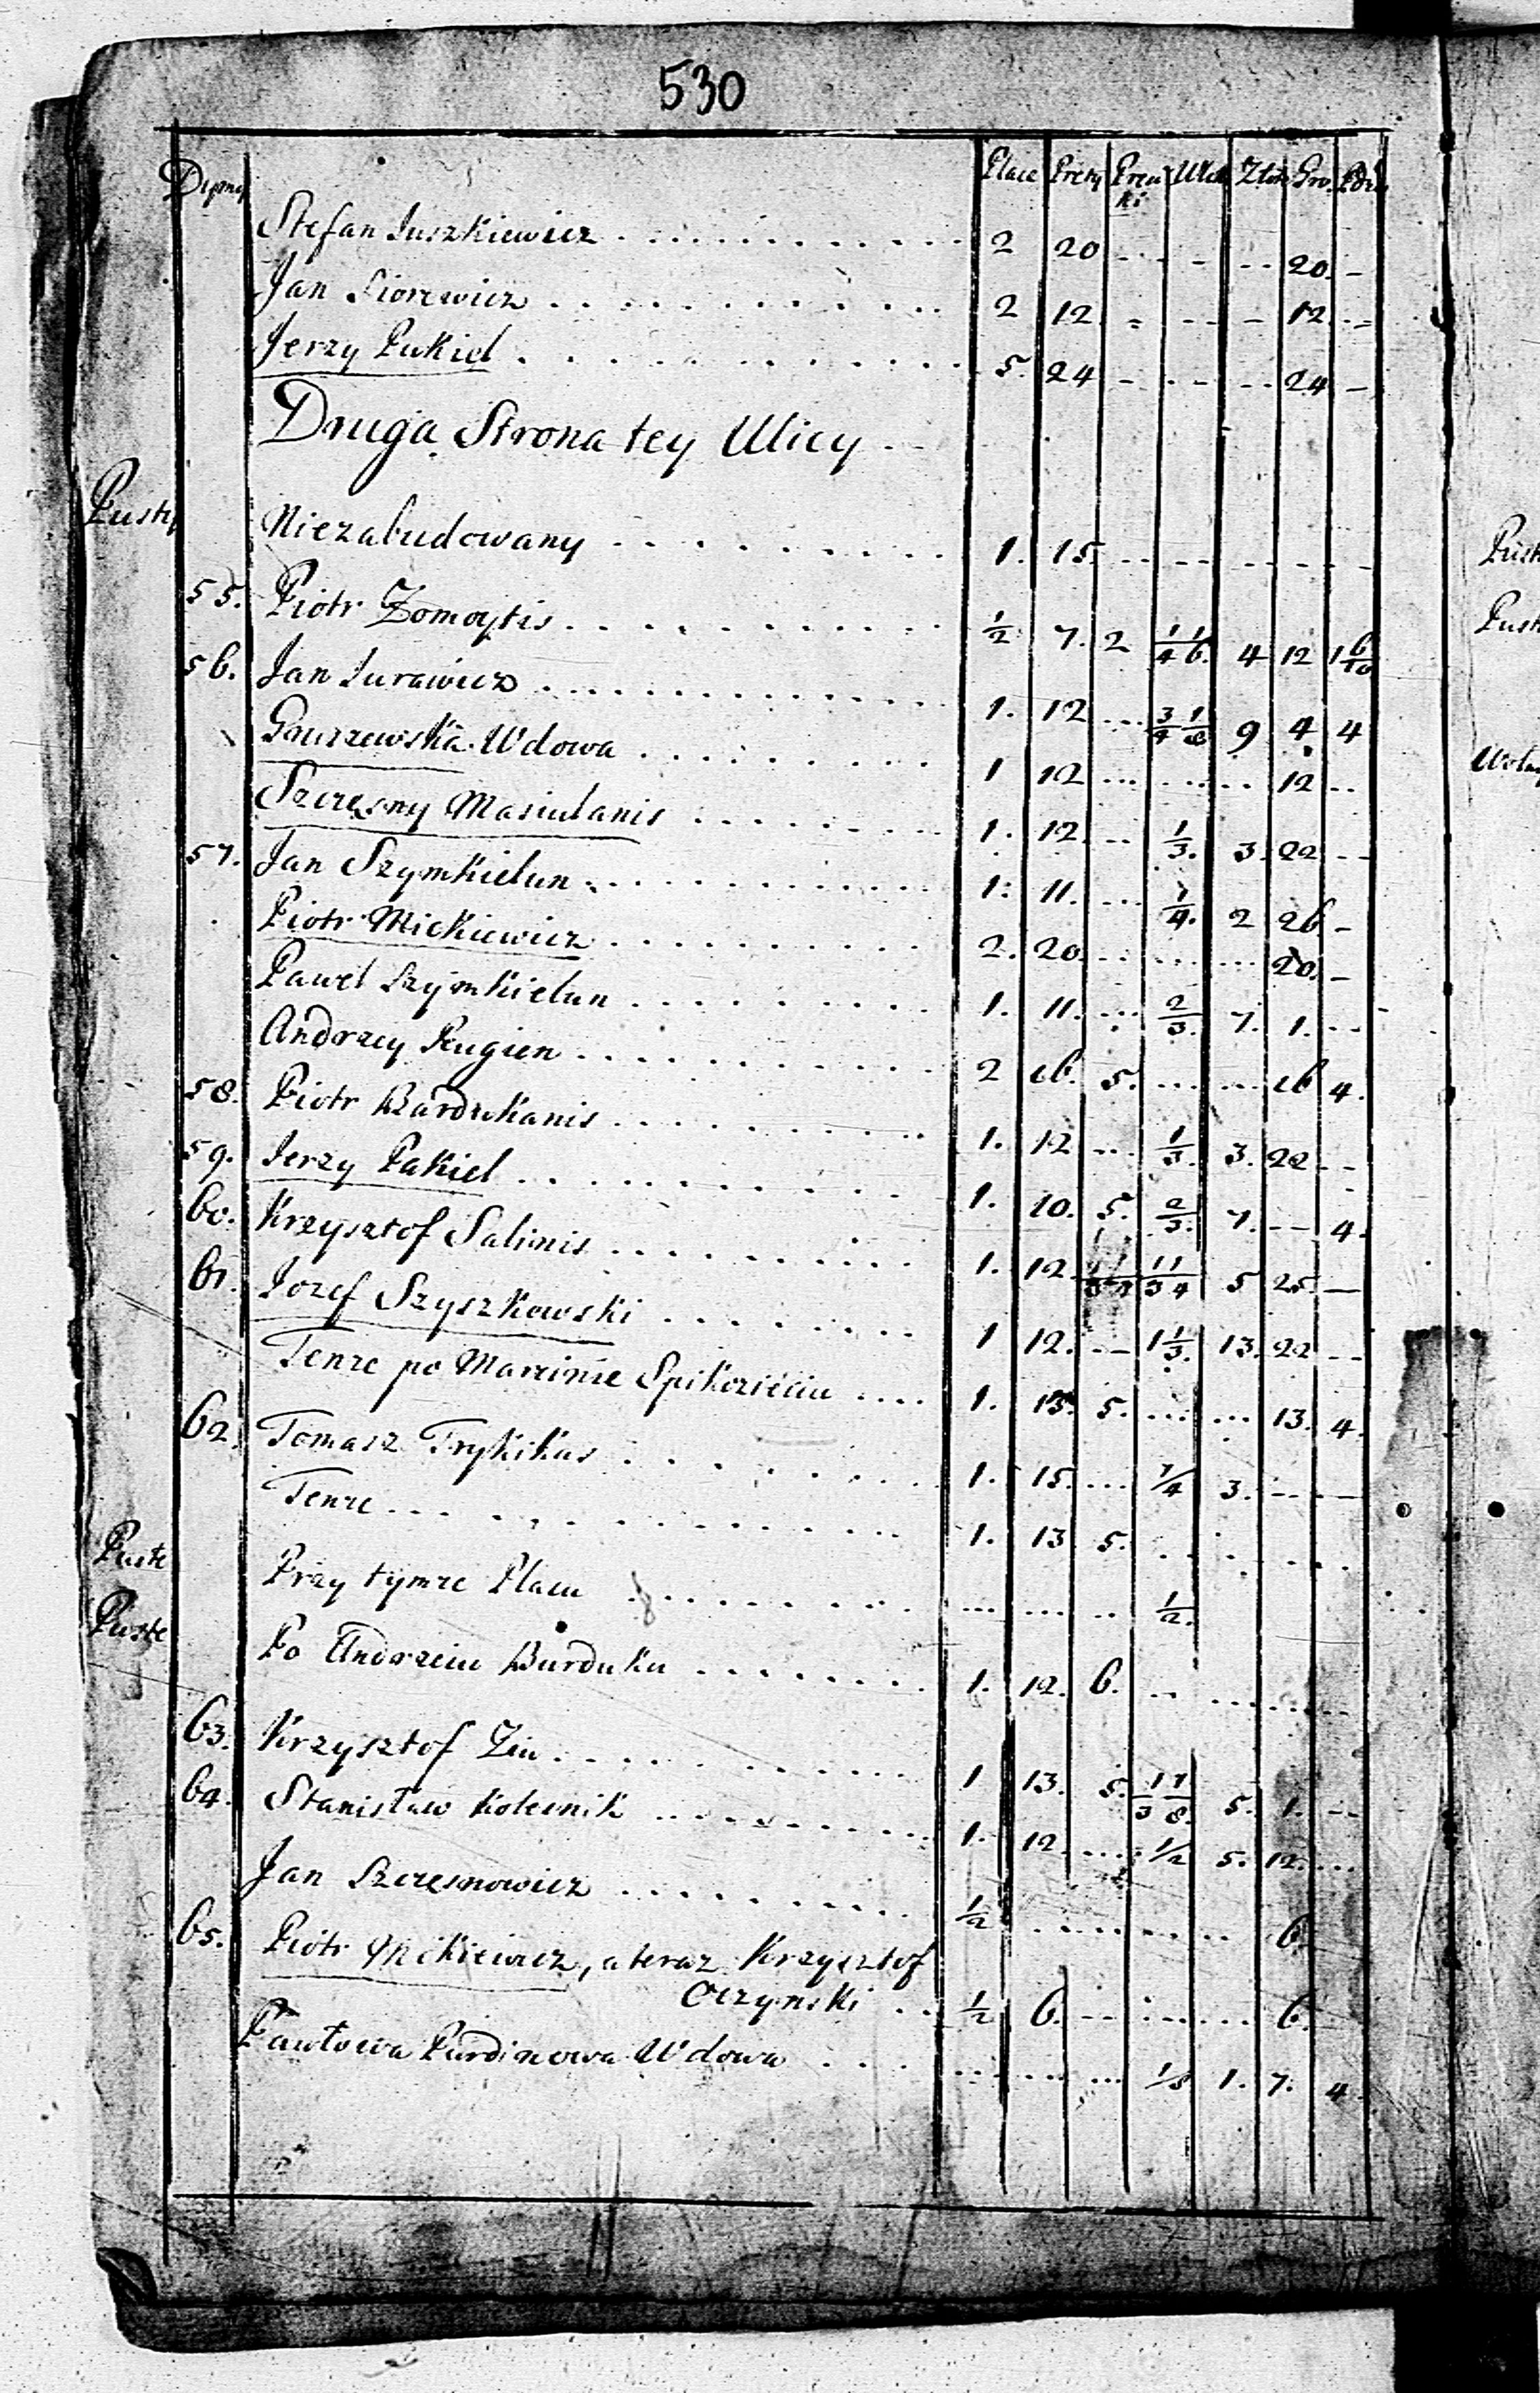 530
Dymy Place Pręty Pręci ki Włók Złote Gro.
Stefan Juszkiewicz . . . . 2 20 ... - -- 20. -
Jan Siorewicz . . . . 2 12 - -- - 12 --
Jerzy Pukiel . . . . 5. 24 - -- -- 24 -
Druga Strona tey Ulicy
Pusty Niezabudowany . . . . 1. 15. -- -- -- - -
55. Piotr Zomoytis . . . . 1/2 7. 2 1/4 1/6. 4 12 1 6/10
56. Jan Jurawicz . . . . 1. 12 ... 3/4 1/8 9 4 4
Gruszewska Wdowa . . . . 1 12 ... ... .. 12 ..
Szczęsny Masiulanis . . . . 1. 12. -- 1/3. 3. 22 --
57. Jan Szymkielun . . . . 1. 11. ... 1/4. 2 26 -
Piotr Mickiewicz . . . . 2. 20. ... ... ... 20. -
Paweł Szymkielun . . . . 1. 11. ... 2/3. 7. 1. --
Andrzey Rugien . . . . 2 16. 5. ... ... 16 4.
58. Piotr Bardukanis . . . . 1. 12 ... 1/3. 3. 22 --
59. Jerzy Pakiel . . . . 1. 10. 5. 2/3. 7. -- 4.
60. Krzysztof Salimis . . . . 1. 12 1/3 1/4 5 25. —
61. Jozef Szyszkowski . . . . 1 12. -- 1 1/3. 13. 22 --
Tenze po Marcinie . . . . 1. 13. 5. ... ... 13. 4.
62. Tomasz Trykikas . . . . 1. 15. ... 1/4 3. -- —
Tenze . . . . 1. 13 5. . . . .
Puste Przy tymze Placu . . . . ... ... .. 1/2.
Puste Po Andrzeiu Burduku . . . . 1. 12. 6. -- ...
63. Krzysztof Ziu . . . . 1 13. 5. 1/3 1/8. 5. 1. --
64. Stanisław Kolesnik . . . . 1. 12 ... 1/2 5. 12. ...
Jan Szczęsnowicz . . . . 1/2 ... ... ... 6
65. Piotr Mikiewicz, a teraz Krzysztof
Oczynski . . 1/2 6. -- ... ... 6.
Pawłowa Purdinowa Wdowa . . . . ... ... ... 1/8 1. 7. 4.